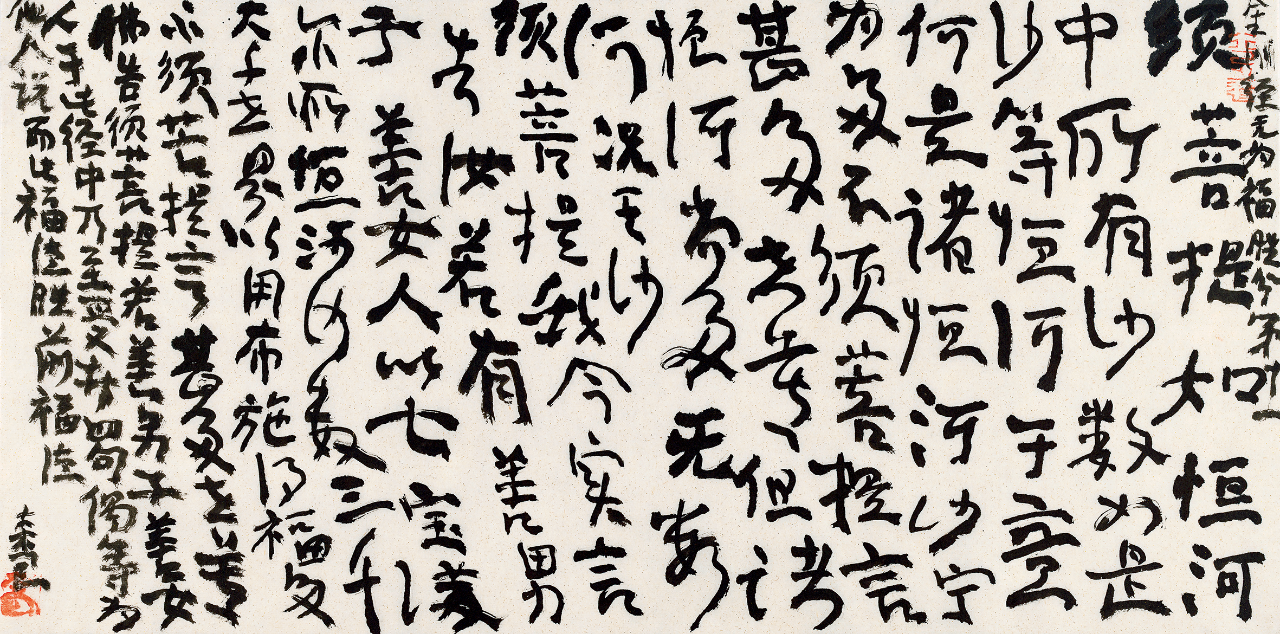 金刚经无为福胜分第十一
须菩提如恒河
中所有沙数如是
沙等恒河于意云
何是诸恒河沙宁
为多不须菩提言
甚多世尊但诸
恒河尚多无数
何况其沙
须菩提我今实言
告汝若有善男
子善女人以七宝满
尔所恒河沙数三千
大千世界以用布施得福多
不须菩提言甚多世尊
佛告须菩提若善男子善女
人于此经中乃至受持四句偈等为
他人说而此福德胜前福德